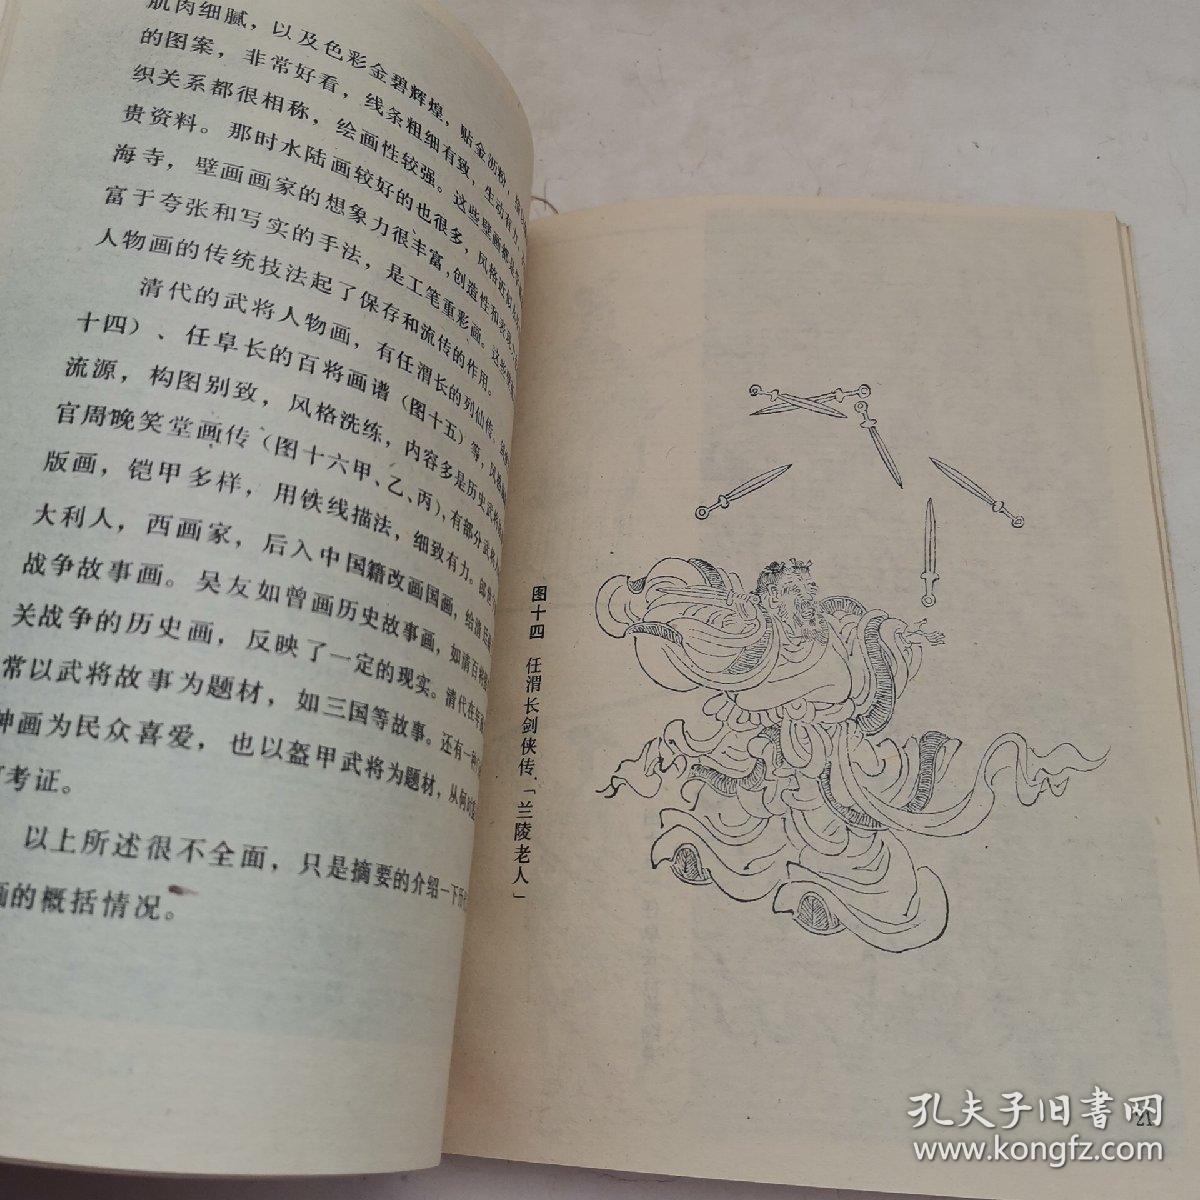 肌肉细腻，以及色彩金碧辉煌，贴金沥粉，
的图案，非常好看，线条粗细有致，生动有力，
织关系都很相称，绘画性较强。这些壁画都是
贵资料。那时水陆画较好的也很多，风格近似
海寺，壁画画家的想象力很丰富，创造性和表现
富于夸张和写实的手法，是工笔重彩画。这些
人物画的传统技法起了保存和流传的作用。
清代的武将人物画，有任渭长的列仙传、剑
十四）、任阜长的百将画谱（图十五）等，风格
流源，构图别致，风格洗练，内容多是历史武将
官周晚笑堂画传（图十六甲、乙、丙），有部分武
版画，铠甲多样，用铁线描法，细致有力。郎世
大利人，西画家，后入中国籍改画国画，给清
战争故事画。吴友如曾画历史故事画，如
关战争的历史画，反映了一定的现实。清代在年
常以武将故事为题材，如三国等故事。还有一种
神画为民众喜爱，也以盔甲武将为题材，从何时
考证。
以上所述很不全面，只是摘要的介绍一下历
画的概括情况。
图十四 任渭长剑侠传．「兰陵老人」
21
孔夫子旧书网
www.kongfz.com